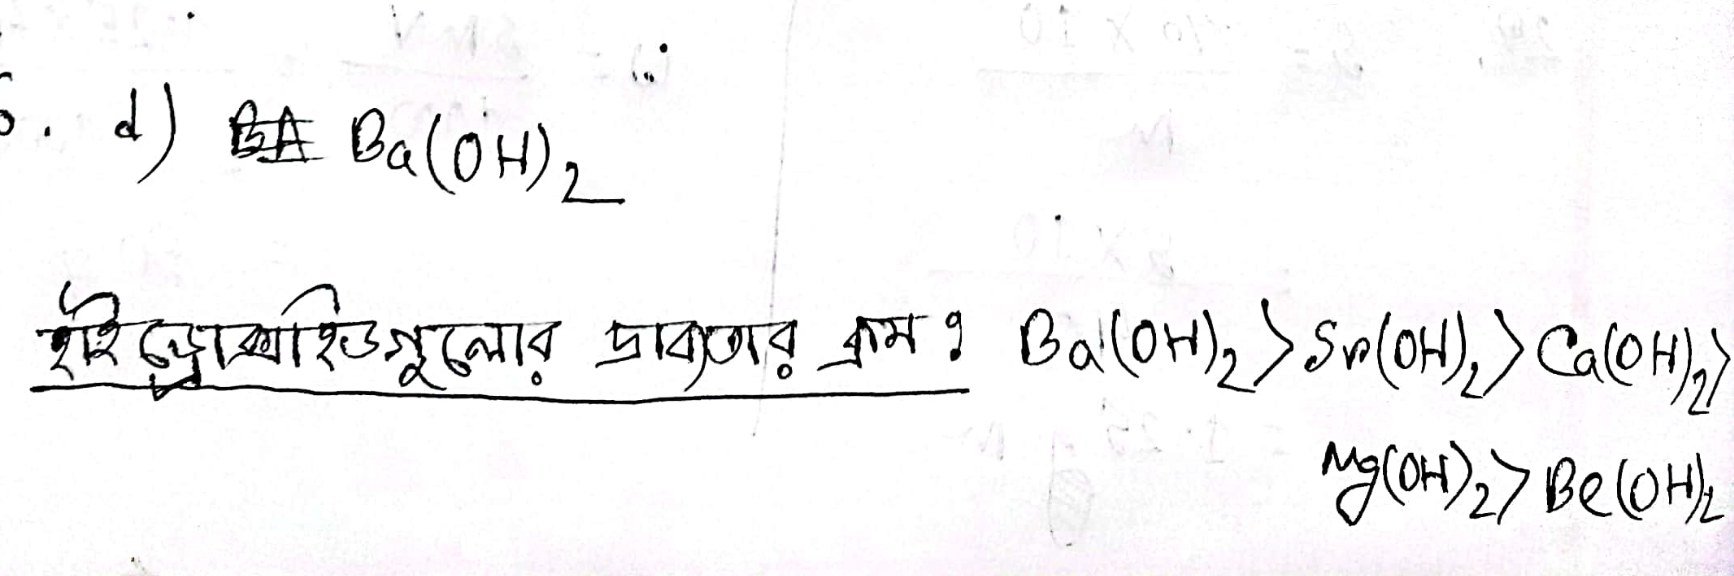 d) Ba(OH)2
হাইড্রোক্সাইডগুলোর দ্রাব্যতার ক্রম : Ba(OH)2 > Sr(OH)2 > Ca(OH)2 >
Mg(OH)2 > Be(OH)2